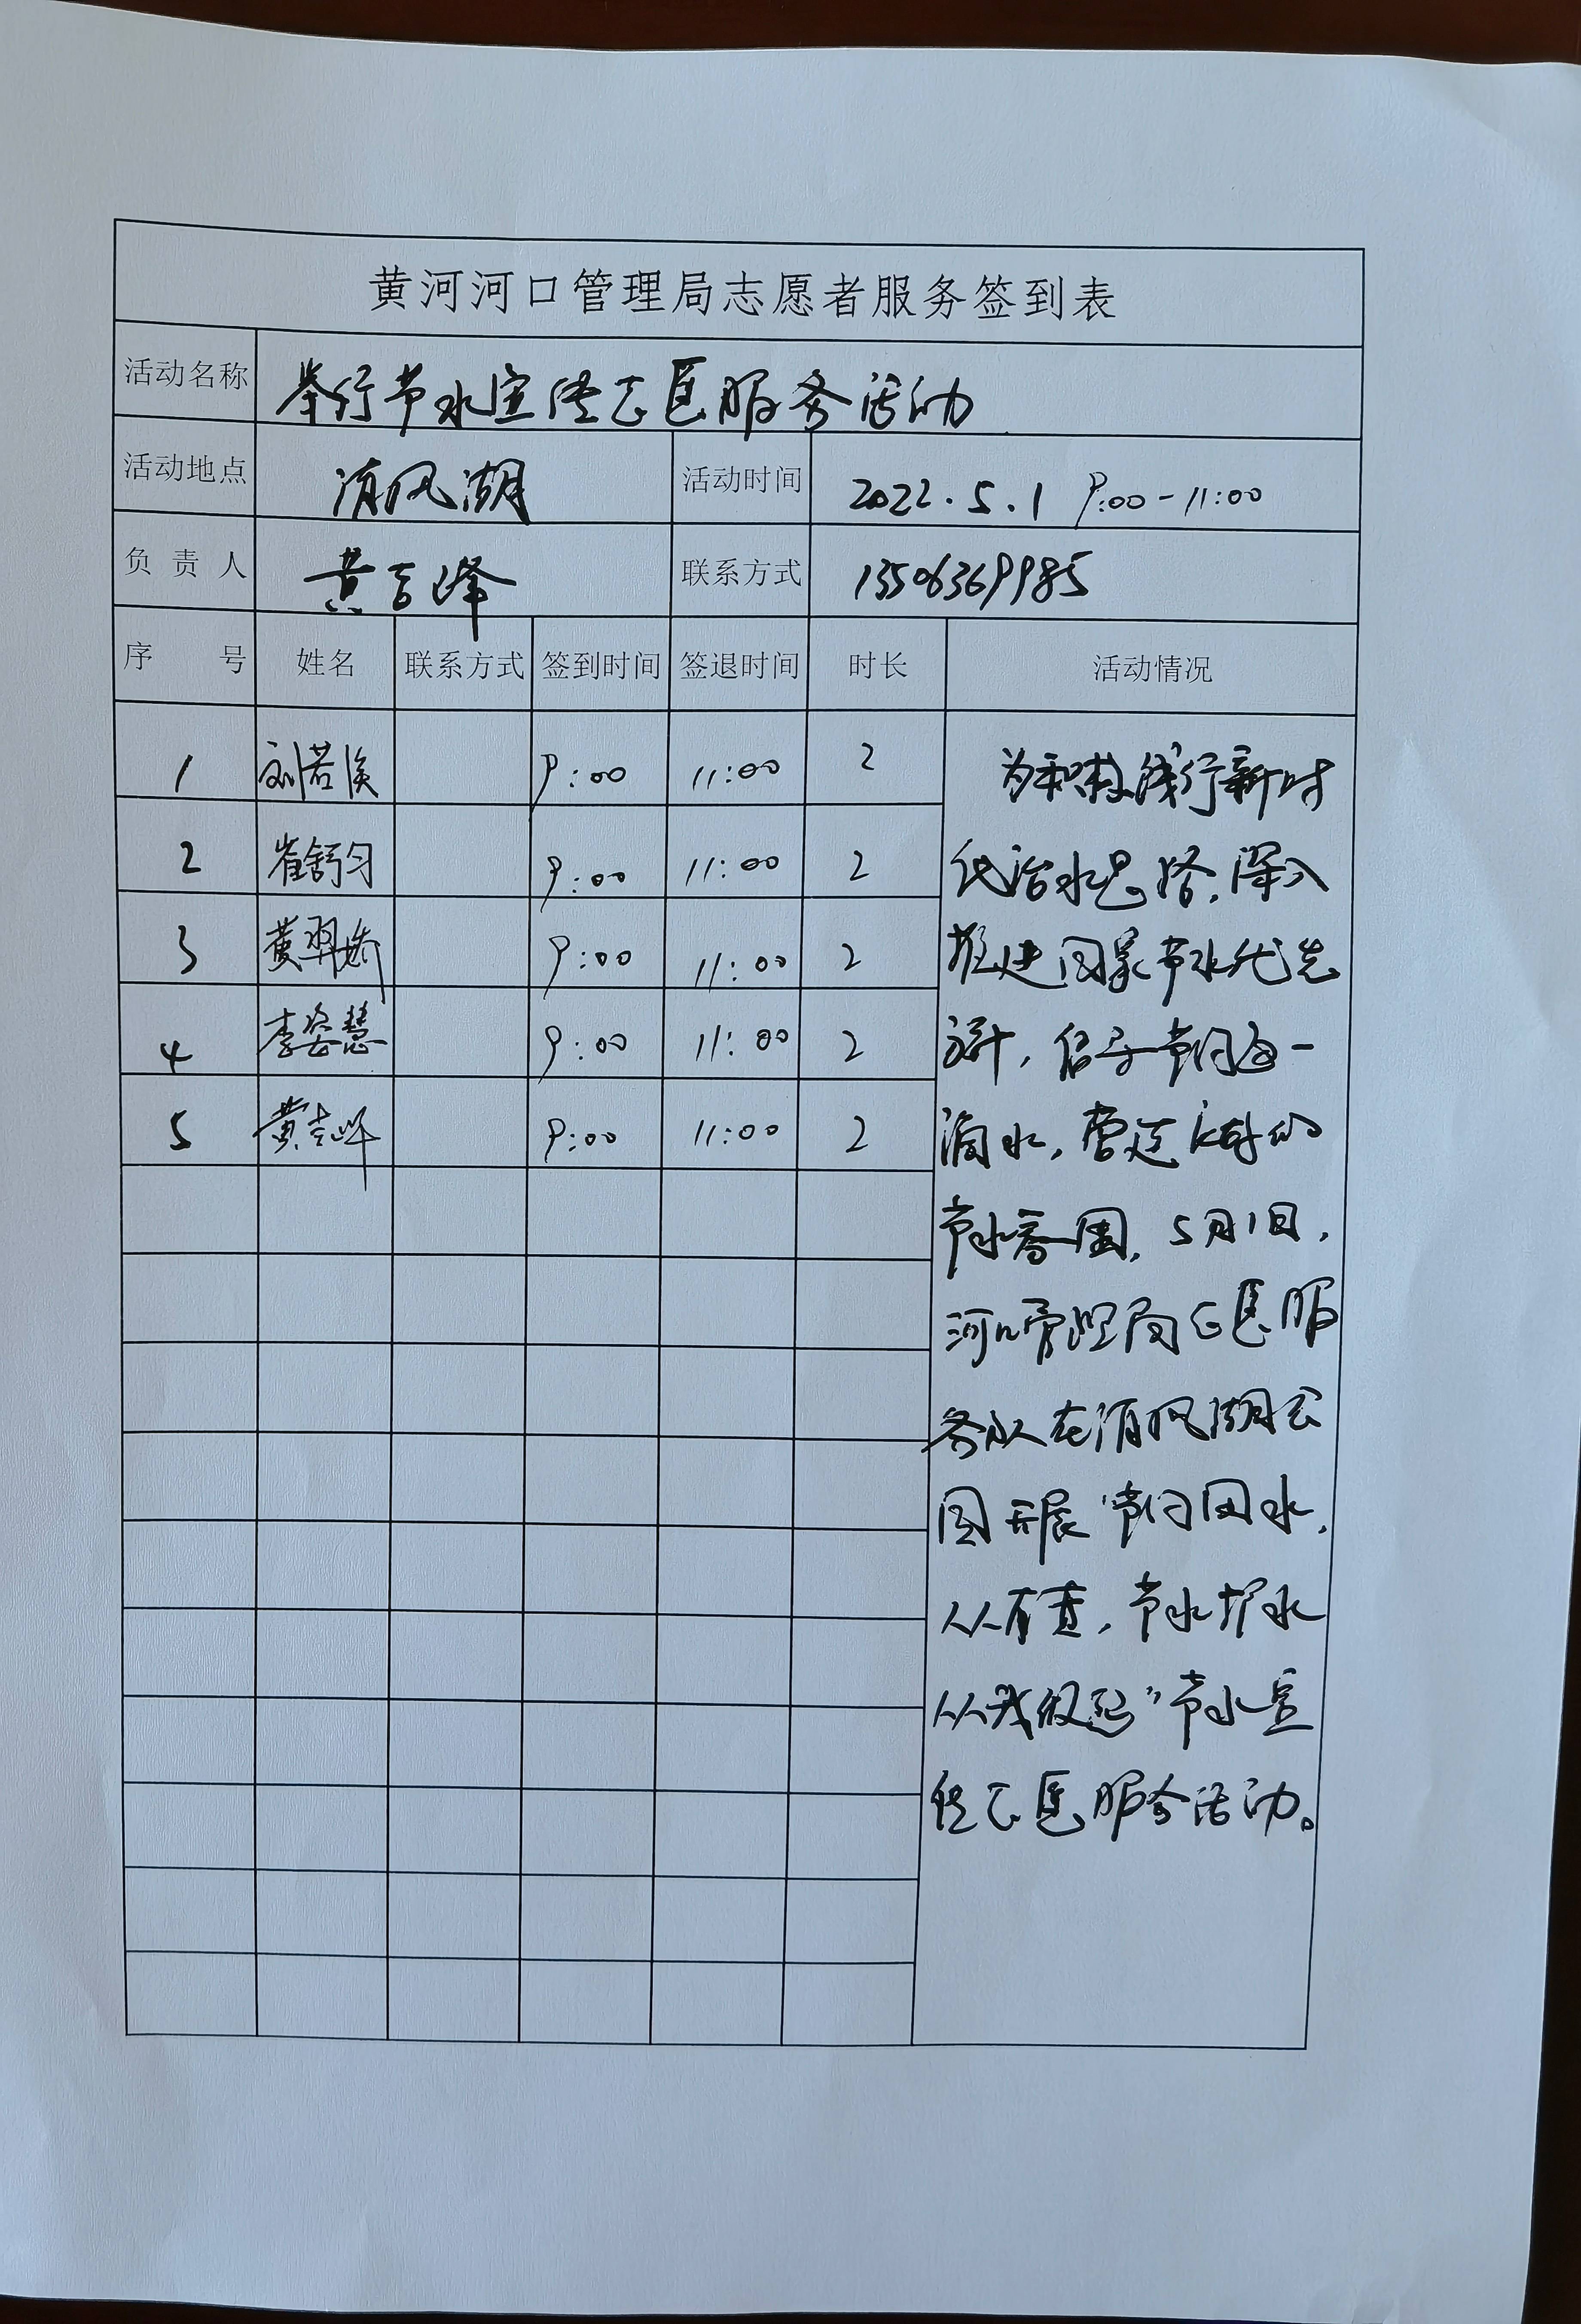 黄河河口管理局志愿者服务签到表
活动名称 举行节水宣传志愿服务活动
活动地点 清风湖 活动时间 2022.5.1 9:00-11:00
负责人 黄吉峰 联系方式 13506369985
序号 姓名 联系方式 签到时间 签退时间 时长 活动情况
1 刘若 9:00 11:00 2
2 崔舒匀 9:00 11:00 2
3 黄羿娇 9:00 11:00 2
4 李姿慧 9:00 11:00 2
5 黄吉峰 9:00 11:00 2
为积极践行新时
代治水思路,深入
推进国家节水优先
方针,倡导节约每一
滴水,营造良好的
节水氛围,5月1日,
河口管理局志愿服
务队在清风湖公
园开展“节约用水,
人人有责,节水护水
从我做起”节水宣
传志愿服务活动。